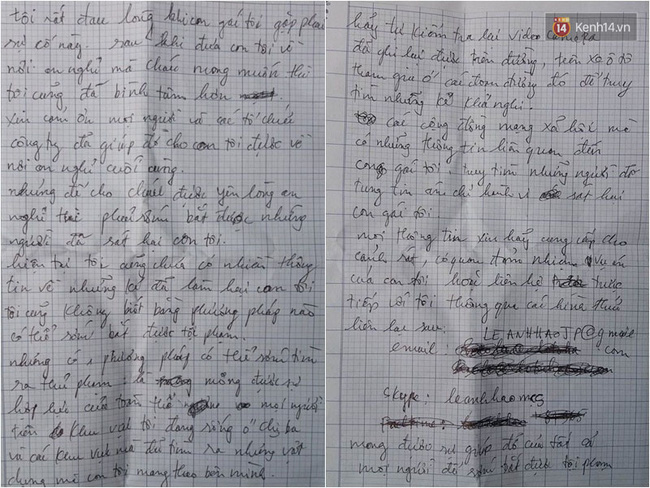 tôi rất đau lòng khi con gái tôi gặp phải
sự cố này. sau khi đưa con tôi về
nơi an nghỉ mà cháu mong muốn thì
tôi cũng đã bình tâm hơn
xin cảm ơn mọi người và các tổ chức
công ty đã giúp đỡ cho con tôi được về
nơi an nghỉ cuối cùng.
nhưng để cho cháu được yên lòng an
nghỉ thì phải sớm bắt được những
người đã sát hại con tôi.
hiện tại tôi cũng chưa có nhiều thông
tin về những kẻ đã làm hại con tôi
tôi cũng không biết bằng phương pháp nào
có thể sớm bắt được tội phạm.
nhưng có 1 phương pháp có thể sớm tìm
ra thủ phạm: là mong được sự
hợp lực của toàn thể mọi người
trên khu vực tôi đang sống ở chi ba
và các khu vực mà đã tìm ra những vật
dụng mà con tôi mang theo bên mình.
hãy tự kiểm tra lại video camera
đã ghi lại được trên đường, trên xe ô tô
tham qua ở các đoạn đường đó để truy
tìm những kẻ khả nghi.
các cộng đồng mạng xã hội mà
có những thông tin liên quan đến
con gái tôi. truy tìm những người đó
tung tin ám chỉ hành vi sát hại
con gái tôi.
mọi thông tin xin hãy cung cấp cho
cảnh sát, cơ quan đảm nhiệm vụ án
của con tôi hoặc liên hệ trực
tiếp với tôi thông qua các hình thức
liên lạc sau: LEANHHAOJP@gmail
email: com
Skype: leanhhaomcs
mong được sự giúp đỡ của tất cả
mọi người để sớm bắt được tội phạm
14 Kenh14.vn